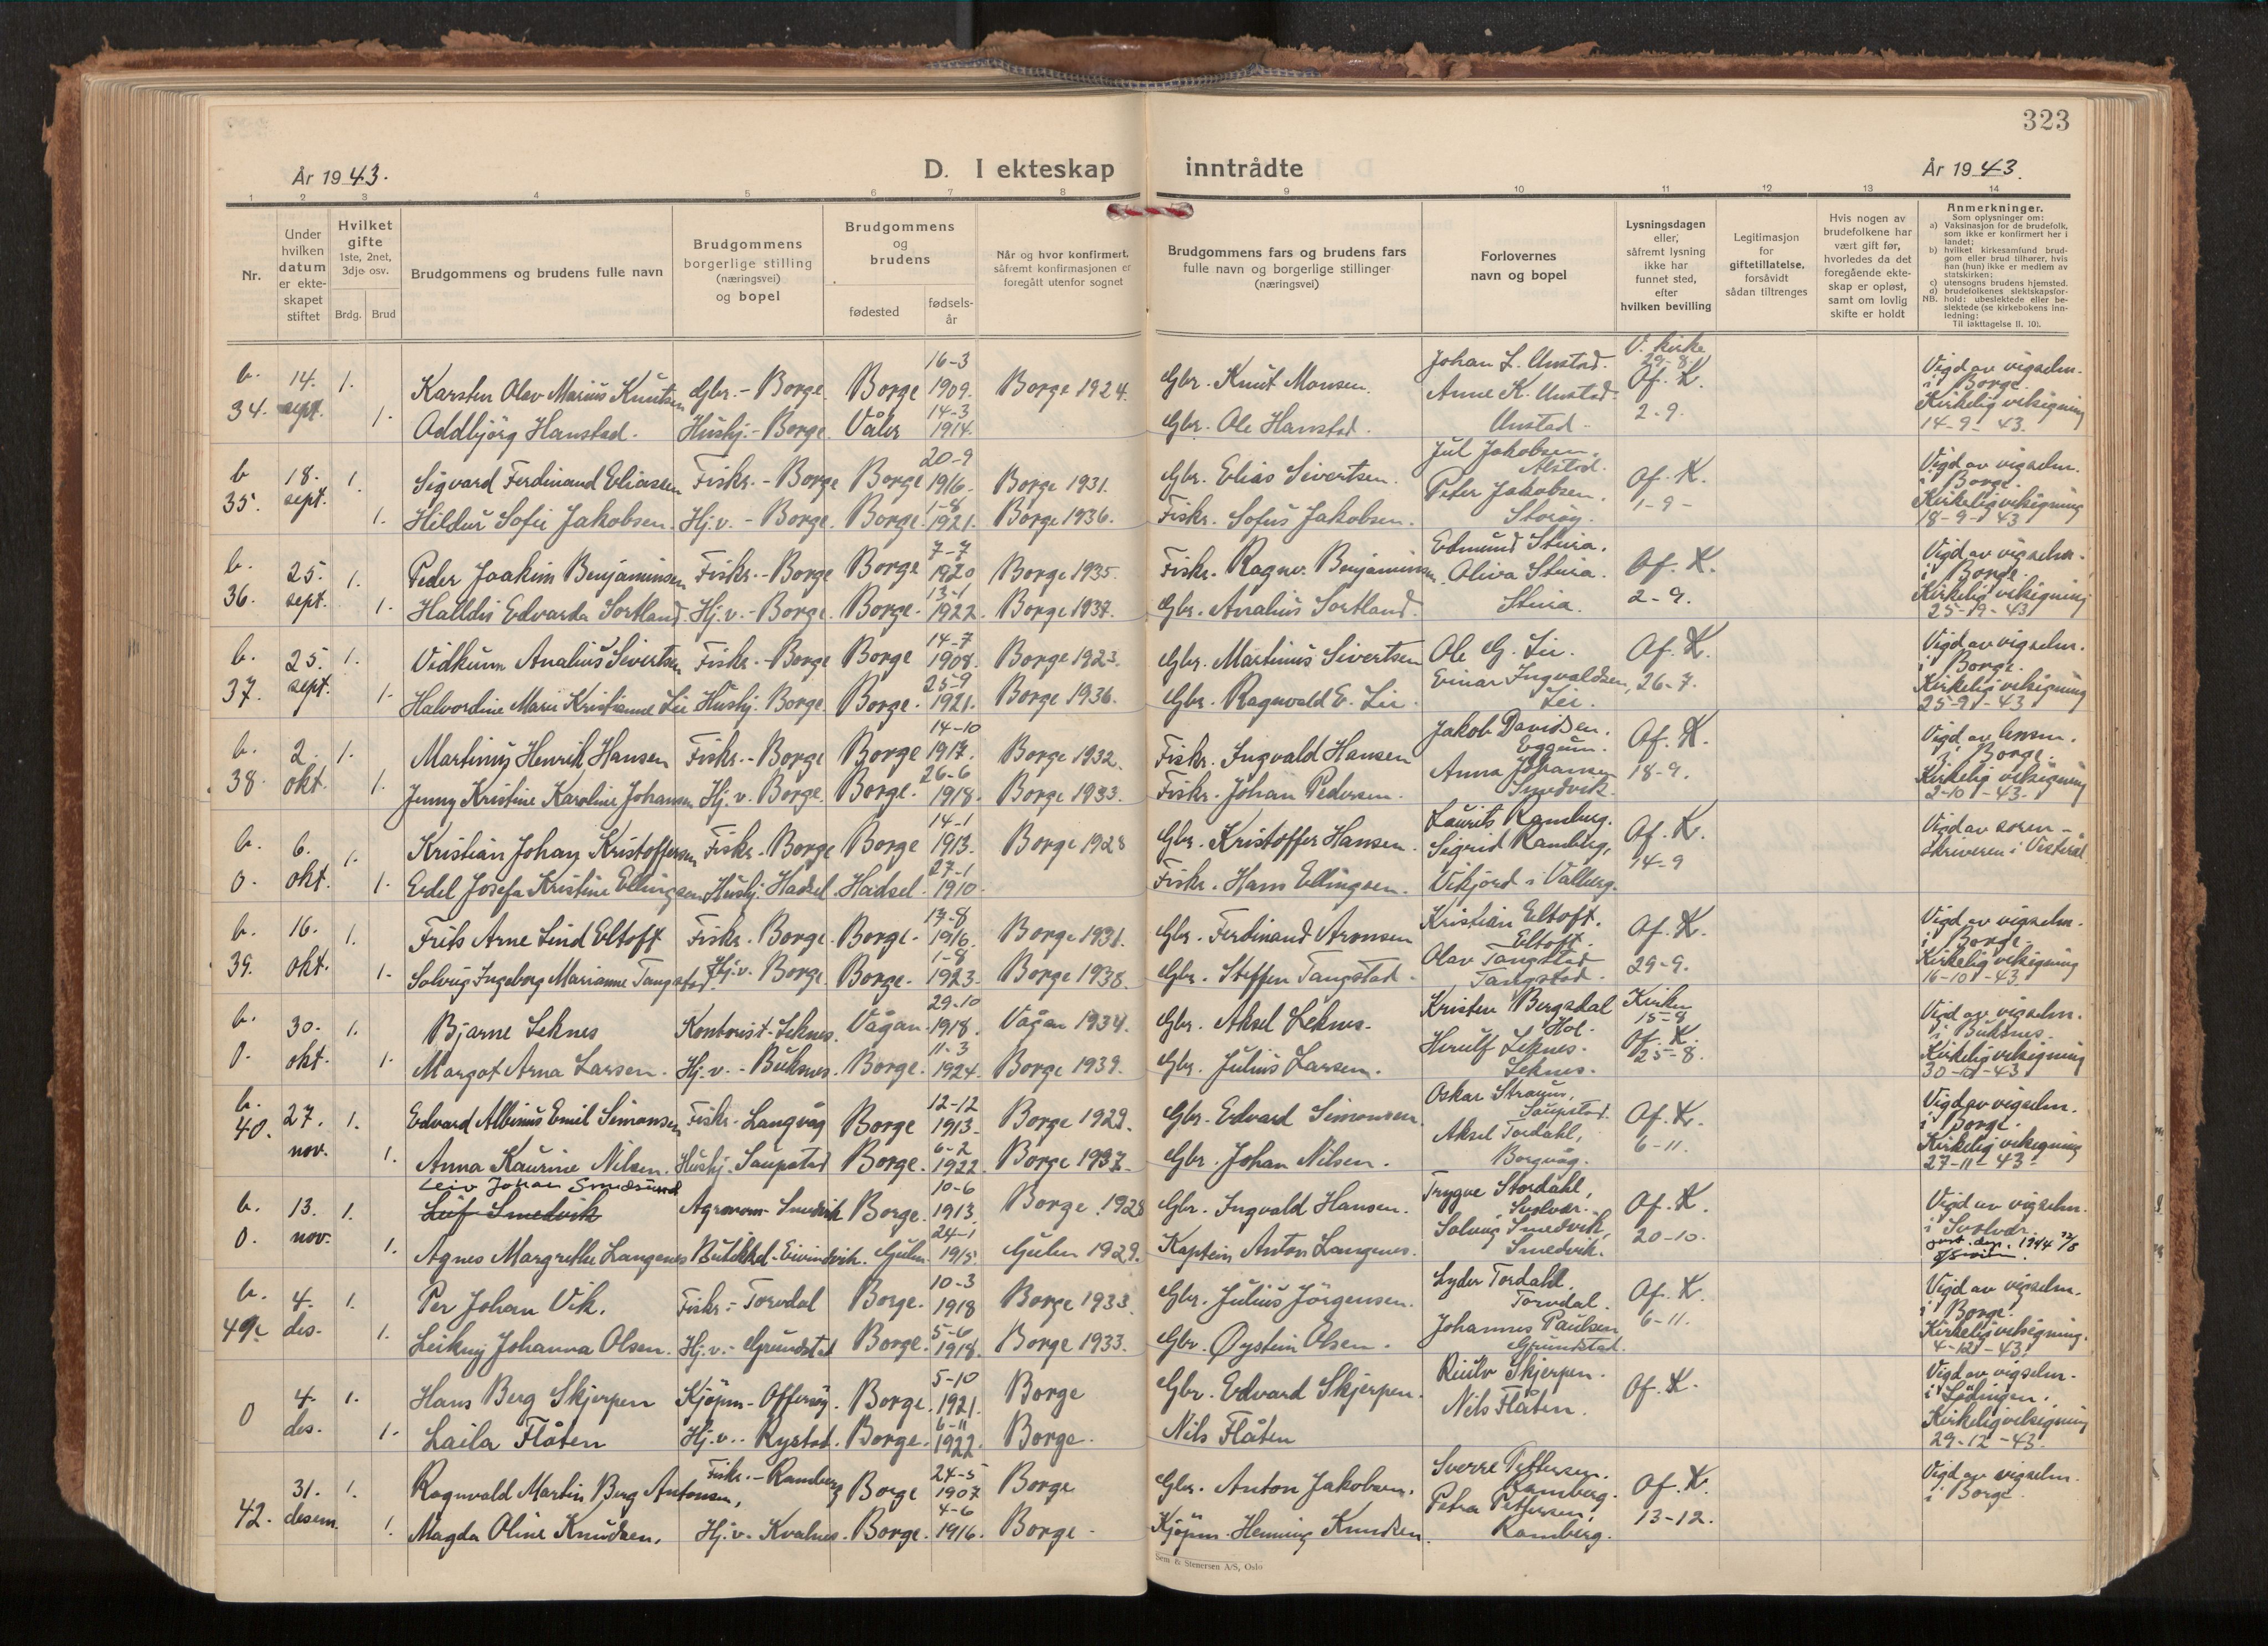 323
År 1943.
D. I ekteskap inntrådte
År 1943.
1 2 3 4 5 6 7 8 9 10 11 12 13 14
Nr.
Under hvilken datum er ekteskapet stiftet
Hvilket gifte 1ste, 2net, 3dje osv.
Brdg. Brud
Brudgommens og brudens fulle navn
Brudgommens borgerlige stilling (næringsvei) og bopel
Brudgommens og brudens
fødested
fødsels-år
Når og hvor konfirmert, såfremt konfirmasjonen er foregått utenfor sognet
Brudgommens fars og brudens fars fulle navn og borgerlige stillinger (næringsvei)
Forlovernes navn og bopel
Lysningsdagen eller, såfremt lysning ikke har funnet sted, efter hvilken bevilling
Legitimasjon for giftetillatelse, forsåvidt sådan tiltrenges
Hvis nogen av brudefolkene har vært gift før, hvorledes da det foregående ekteskap er opløst, samt om lovlig skifte er holdt
Anmerkninger.
Som oplysninger om:
a) Vaksinasjon for de brudefolk, som ikke er konfirmert her i landet;
b) hvilket kirkesamfund brudgom eller brud tilhører, hvis han (hun) ikke er medlem av statskirken;
c) utensogns brudens hjemsted.
d) brudefolkenes slektskapsforhold: ubeslektede eller beslektede (se kirkebokens innledning:
NB. Til iakttagelse II. 10).
b. 34. 14. sept. 1. Karsten Olav Marius Knutsen Gbr. - Borge. Borge 16-3 1909. Borge 1924. Gbr. Knut Monsen. Johan L. Unstad. V. kirke 29-8. Af. K. Vigd av vigselm. i Borge.
1. Oddbjörg Hanstad. Hushj. - Borge. Våler 14-3 1914. Gbr. Ole Hanstad. Anne K. Unstad. Unstad. 2-9. Kirkelig velsigning 14-9-43.
b 35. 18. sept. 1. Sigvard Ferdinand Eliassen Fiskr. - Borge Borge 20-9 1916. Borge 1931. Gbr. Elias Sivertsen. Jul Jakobsen, Alstad. Af. K. Vigd av vigselm. i Borge.
1. Hildur Sofie Jakobsen. Hj.v. - Borge. Borge. 1-8 1921. Borge 1936. Fiskr. Sofus Jakobsen. Peter Jakobsen. Storøy. 1-9- Kirkelig velsigning 18-9-43
b. 36. 25. sept. 1. Peder Joakim Benjaminsen Fiskr. - Borge Borge 7-7 1920 Borge 1935. Fiskr. Ragnv. Benjaminsen. Edmund Stura. Af. K. Vigd av vigselm. i Borge.
1. Halldis Edvarda Sortland. Hj.v. - Borge. Borge. 13-1 1922. Borge 1937. Gbr. Analius Sortland. Oliva Stura. Stura. 2-9. Kirkelig velsigning 25-9-43
b. 37. 25. sept. 1. Vidkunn Analius Sivertsen Fiskr. - Borge Borge 14-7 1908. Borge 1923. Gbr. Martinus Sivertsen Ole G. Lie. Af. K. Vigd av vigselm. i Borge.
1. Halvordine Marie Kristianne Lie Hushj. Borge. Borge. 25-9 1921. Borge 1936. Gbr. Ragnvald E. Lie. Einar Ingvaldsen, Lie. 26-7. Kirkelig velsigning 25-9-43
b. 38. 2. okt. 1. Martinus Henrik Hansen Fiskr. - Borge Borge 14-10 1917. Borge 1932. Fiskr. Ingvald Hansen Jakob Davidsen. Eggum. Af. K. Vigd av lensm. i Borge.
1. Jenny Kristine Karoline Johansen Hj.v. Borge. Borge. 26-6 1918. Borge 1933. Fiskr. Johan Pedersen. Anna Johansen Smedvik. 18-9. Kirkelig velsigning 2-10-43.
b. 0. 6. okt. 1. Kristian Johan Kristoffersen Fiskr. Borge Borge 14-1 1913. Borge 1928 Gbr. Kristoffer Hansen. Laurits Ramberg. Af. K. Vigd av soren-skriveren i Vesterål.
1. Edel Josefa Kristine Ellingsen Hushj. Hadsel. Hadsel. 27-1 1910. Fiskr. Hans Ellingsen. Sigrid Ramberg, Vikjord i Valberg. 14-9
b. 39. 16. okt. 1. Frits Arne Lind Eltoft Fiskr. Borge. Borge. 17-8 1916. Borge 1931. Gbr. Ferdinand Aronsen Kristian Eltoft. Eltoft. Af. K. Vigd av vigselm. i Borge.
1. Solveig Ingeborg Marianne Tangstad Hj.v. Borge. Borge. 1-8 1923. Borge 1938. Gbr. Steffen Tangstad. Olav Tangstad Tangstad. 29-9. Kirkelig velsigning 16-10-43
b. 0. 30. okt. 1. Bjarne Leknes Kontorist - Leknes. Vågan. 29-10 1918. Vågan 1934. Gbr. Aksel Leknes. Kristen Bergsdal Hol. Kirken 15-8 Vigd av vigselm. i Buksnes.
1. Margot Arna Larsen. Hj.v. - Buksnes. Borge. 11-3 1924. Borge 1939. Gbr. Julius Larsen. Herulf Leknes. Leknes. Af. K. 25-8. Kirkelig velsigning 30-10-43
b. 40. 27. nov. 1. Edvard Albinus Emil Simonsen Fiskr. Langvåg Borge 12-12 1913. Borge 1929. Gbr. Edvard Simonsen. Oskar Straum, Saupstad. Af. K. Vigd av vigselm. i Borge.
1. Anna Kaurine Nilsen. Hushj. Saupstad Borge. 6-2 1922. Borge 1937. Gbr. Johan Nilsen. Aksel Tordahl, Borgvåg. 6-11. Kirkelig velsigning 27-11-43-
Leiv Johan Smedsund
b. 0. 13. nov. 1. Leif Smedvik Agronom - Smedvik Borge. 10-6 1913. Borge. 1928 Gbr. Ingvald Hansen. Trygve Stordahl, Svolvær. Af. K. Vigd av vigselm. i Svolvær.
1. Agnes Margrethe Langenes Butikkd. Eivindvik. Gulen. 24-1 1915. Gulen 1929. Kaptein Anton Langenes. Solveig Smedvik, Smedvik. 20-10. 1944
b. 4. des. 1. Per Johan Vik. Fiskr. - Torvdal Borge. 10-3 1918 Borge 1933. Gbr. Julius Jörgensen. Lyder Tordahl. Torvdal. Af. K. Vigd av vigselm. i Borge.
1. Leikny Johanna Olsen. Hj.v. - Grundstad Borge. 5-6 1918. Borge 1933. Gbr. Øystein Olsen. Johannes Paulsen Grundstad. 6-11. Kirkelig velsigning. 4-12-43.
0 4. des. 1. Hans Berg Skjerpen Kjøpm. - Offersøy. Borge. 5-10 1921. Borge Gbr. Edvard Skjerpen. Skjerpen. Af. K. Vigd av vigselm. i Lödingen.
1. Laila Flåten Hj.v. Rystad. Borge. 6-11 1922. Borge. Nils Flåten Nils Flåten. Kirkelig velsigning 29-12-43.
42. 31. desem. 1. Ragnvald Martin Berg Antonsen, Fiskr. - Ramberg Borge 24-5 1907 Borge Gbr. Anton Jakobsen. Sverre Pettersen. Ramberg. Af. K. Vigd av vigselm. i Borge
1. Magda Oline Knudsen. Hj.v. Kvalnes. Borge. 4-6 1916. Borge - Kjøpm. Henning Knudsen. Petra Pettersen, Ramberg. 13-12.
Sem & Stenersen A/S, Oslo